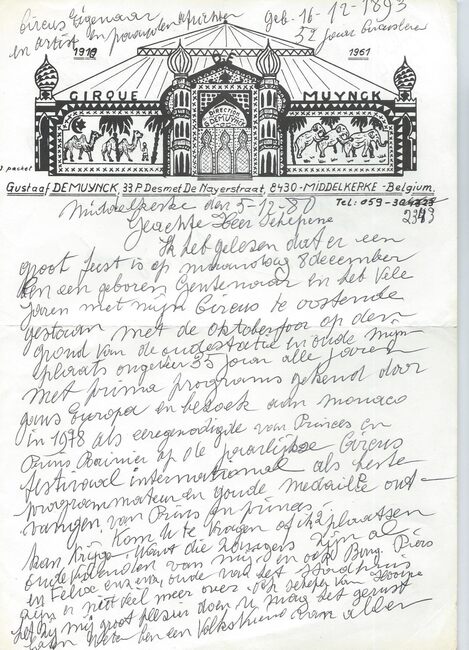 Circus Eigenaar geb-16-12-1893
en artist en stichter 52 jaar Circusleven
1919 1961
CIRQUE MUYNCK
DIRECTION
Gustaaf DEMUYNCK 33 P. Desmet De Nayerstraat, 8430-MIDDELKERKE-Belgium.
Tel: 059-
2343
Middelkerke den 5-12-80
Geachte Heer
Ik heb gelezen dat er een
groot feest is op maandag 8 december
Ben een geboren Gentenaar en heb vele
Jaren met mijn Circus te oostende
gestaan met de oktoberfoor op den
grond van de oudestatie en oude mijn
plaats ongeveer 35 jaar alle jaren
met prima programs gekend door
gans Europa en bezoek aan monaco
in 1978 als eeregenodigde van Princes en
Prins Rainier op de jaarlijkse Circus
festival international als beste
programmateur en goude medaille ont-
vangen van Prins en princes.
Kom U te vragen of ik 2 plaatsen
kan krijgen want die zangers zijn al
oude vrienden van mij en ook Bmg. Piers
en Felice enz enz, oude van het Stadhuis
zijn er niet veel meer over
het zij mij groot plezier doen U mag het gerust
laten weten ben een Volksvriend van allen